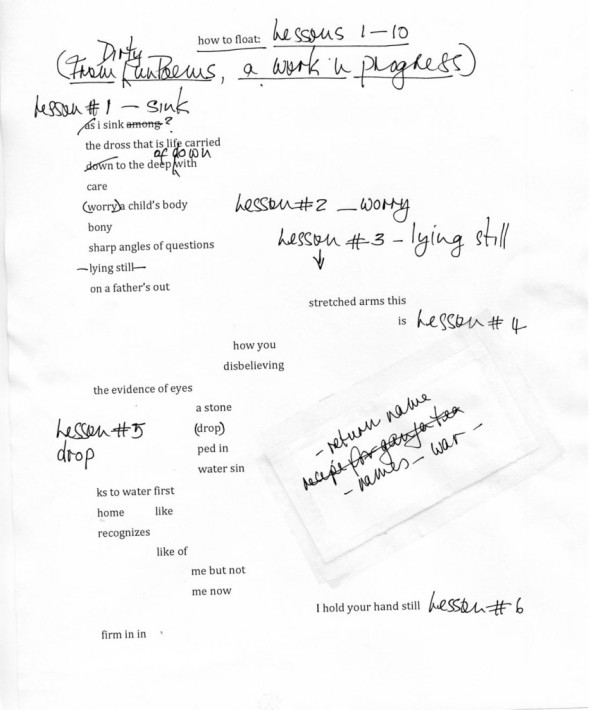 how to float: Lessons 1–10
(From Dirty RunPoems, a work in progress)
Lesson #1 – sink
as i sink among ?
the dross that is life carried
of down
down to the deep with
care
(worry) a child's body Lesson #2 – worry
bony Lesson #3 – lying still
sharp angles of questions
—lying still—
on a father's out
stretched arms this
is Lesson #4
how you
disbelieving
the evidence of eyes
a stone
Lesson #5 (drop)
drop ped in
water sin
- return name
recipe for ganja tea
- names – war -
ks to water first
home like
recognizes
like of
me but not
me now
I hold your hand still Lesson #6
firm in in